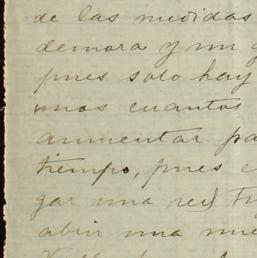 de las medidas
demora y un g
pues solo hay
unos cuantos
aumentar pa
tiempo, pues e
gar una red tr
abrir una nue